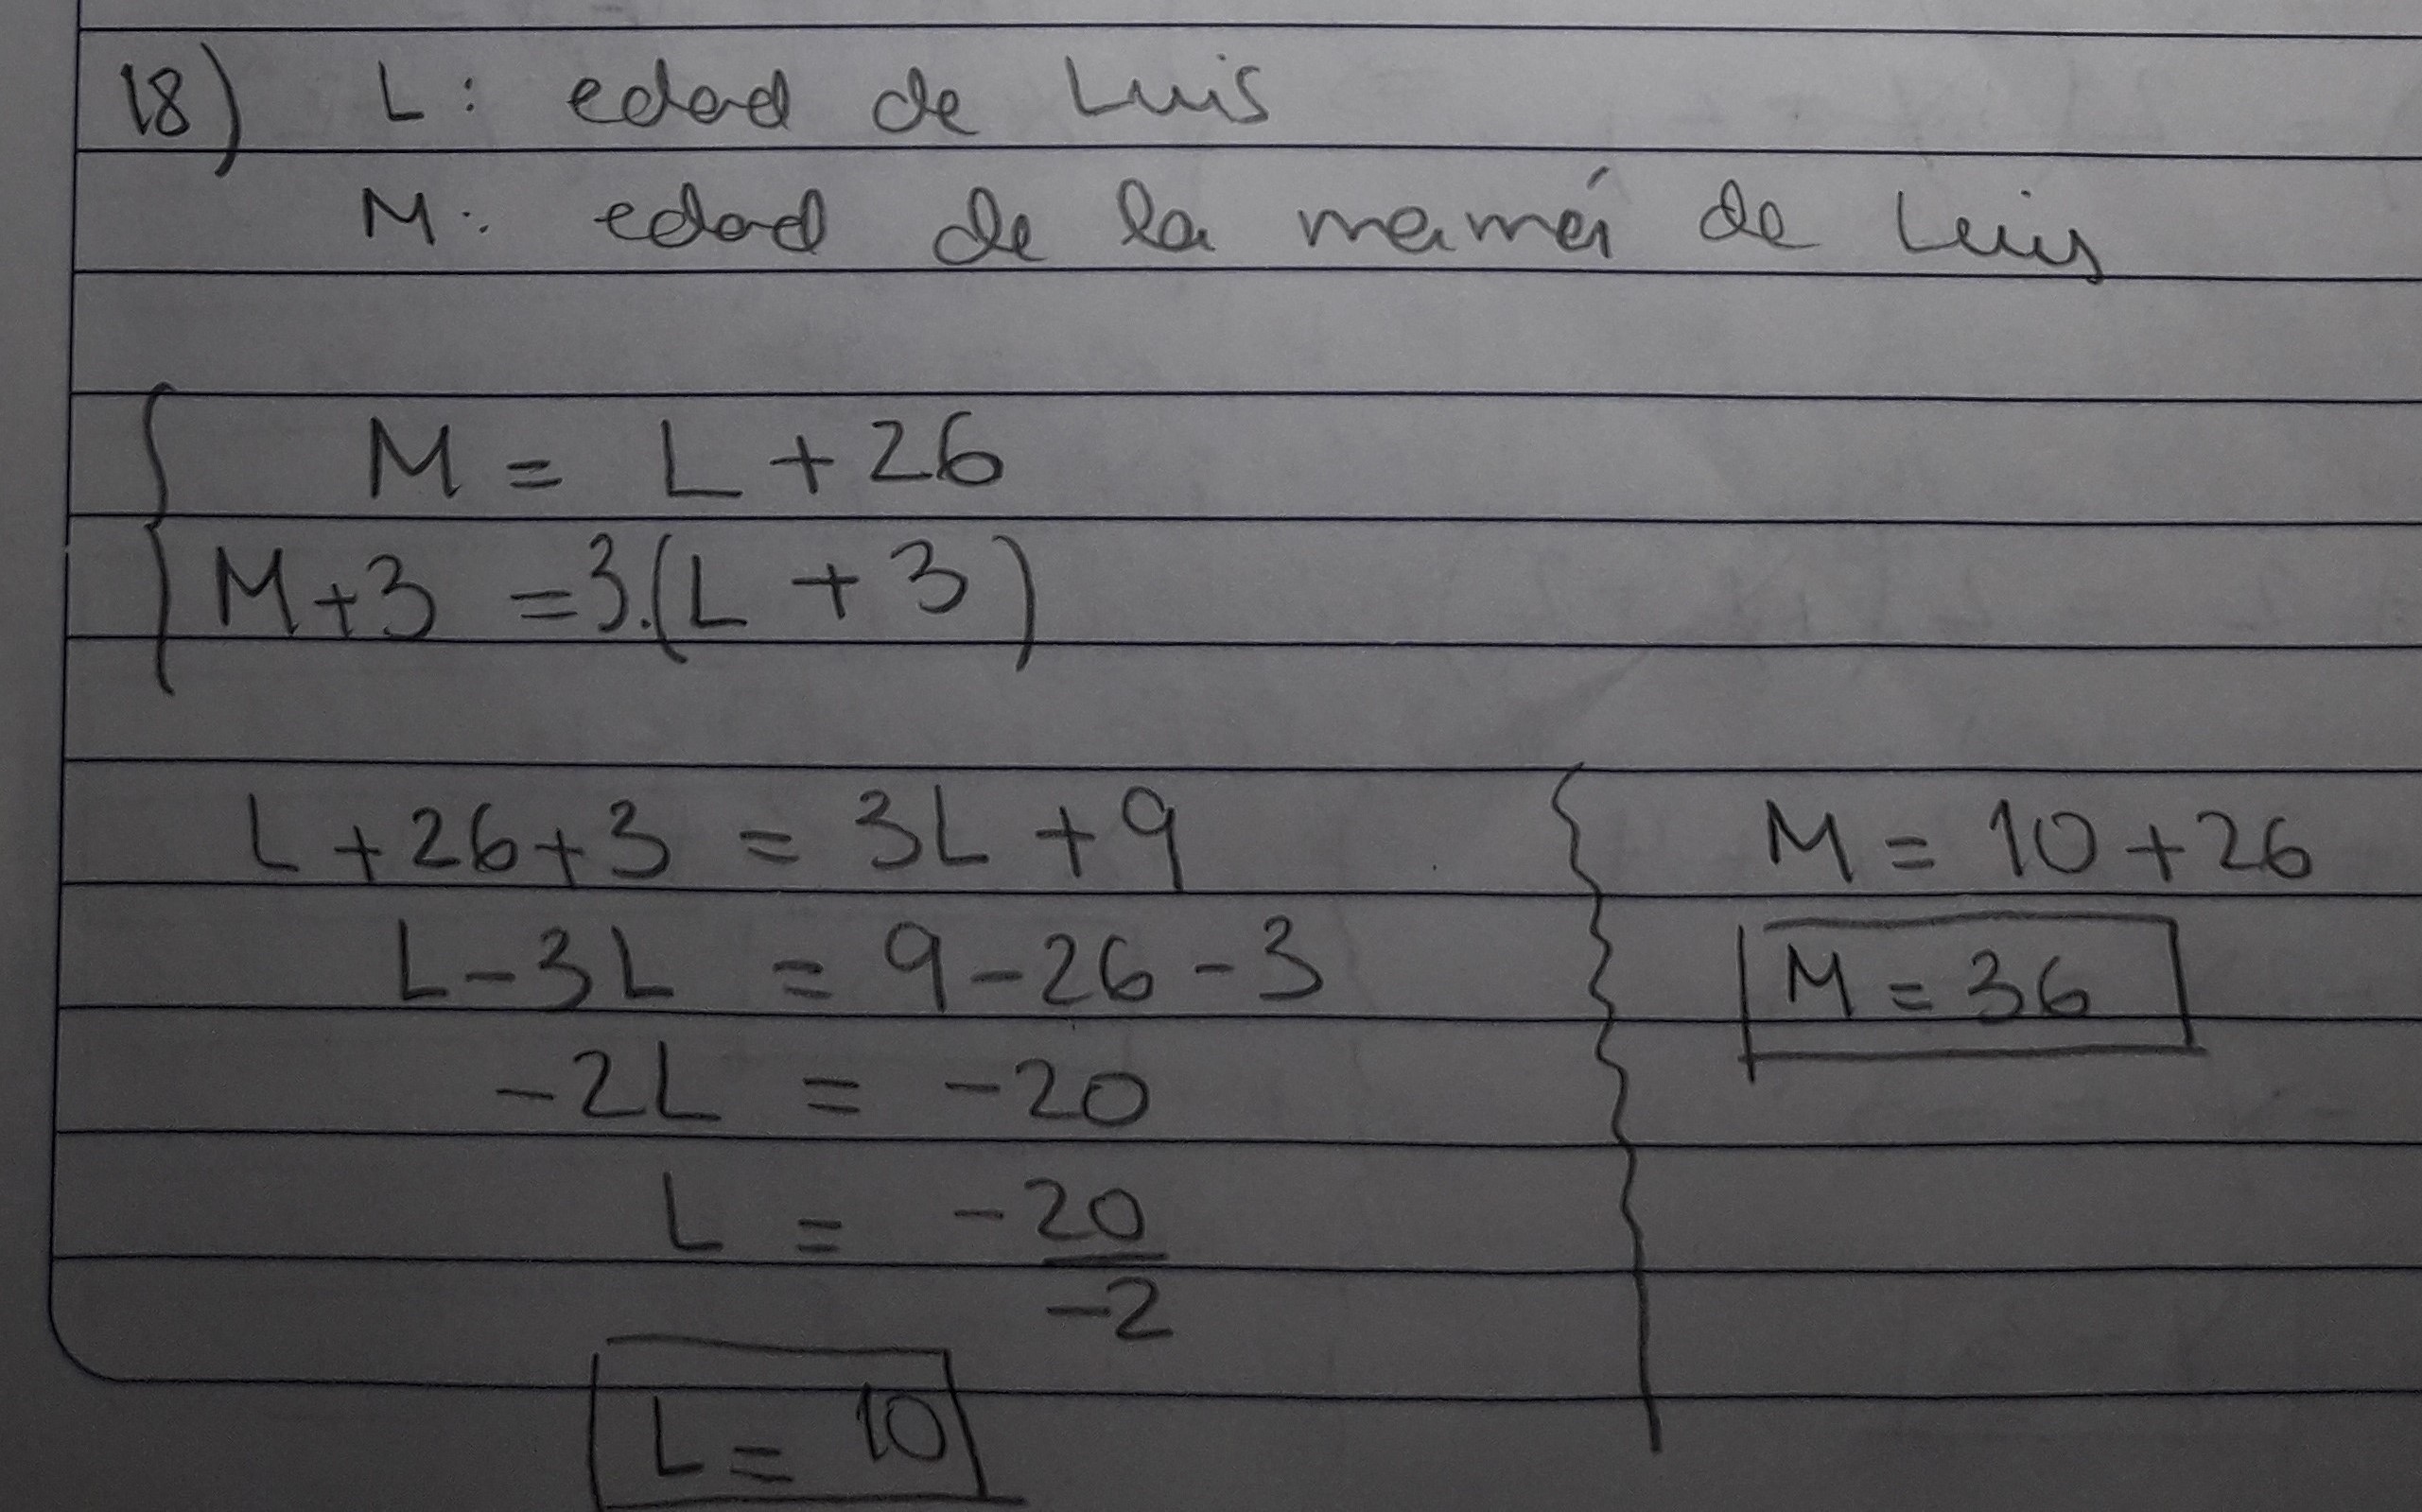 18) L: edad de Luis
M: edad de la mamá de Luis
M = L + 26
M+3 = 3.(L + 3)
L + 26 + 3 = 3L + 9
L - 3L = 9 - 26 - 3
-2L = -20
L = -20
-2
L = 10
M = 10 + 26
M = 36